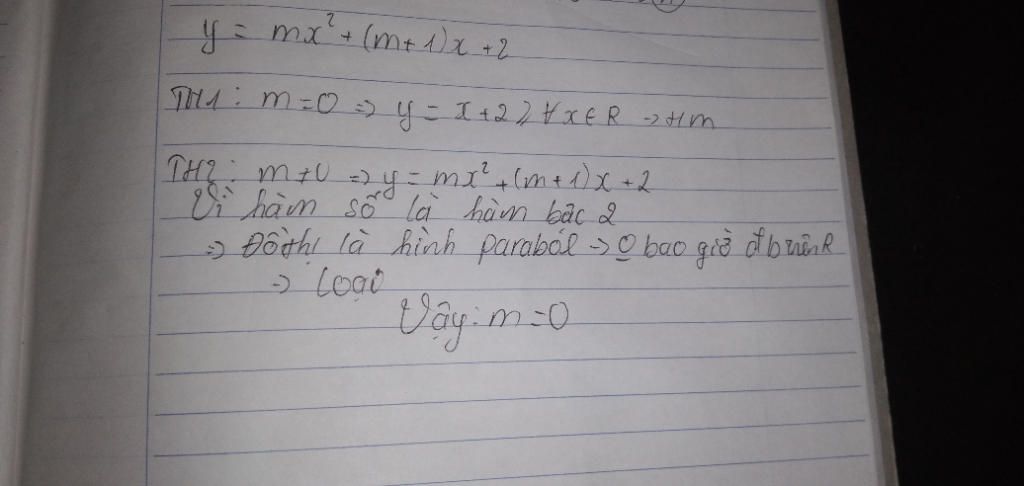 y = mx² + (m+1)x + 2
TH1 : m = 0 => y = x + 2 ↗ ∀x ∈ R -> tm
TH2 : m ≠ 0 => y = mx² + (m+1)x + 2
Vì hàm số là hàm bậc 2
=> Đồ thị là hình parabol -> O bao giờ đb trên R
=> Loại
Vậy: m = 0